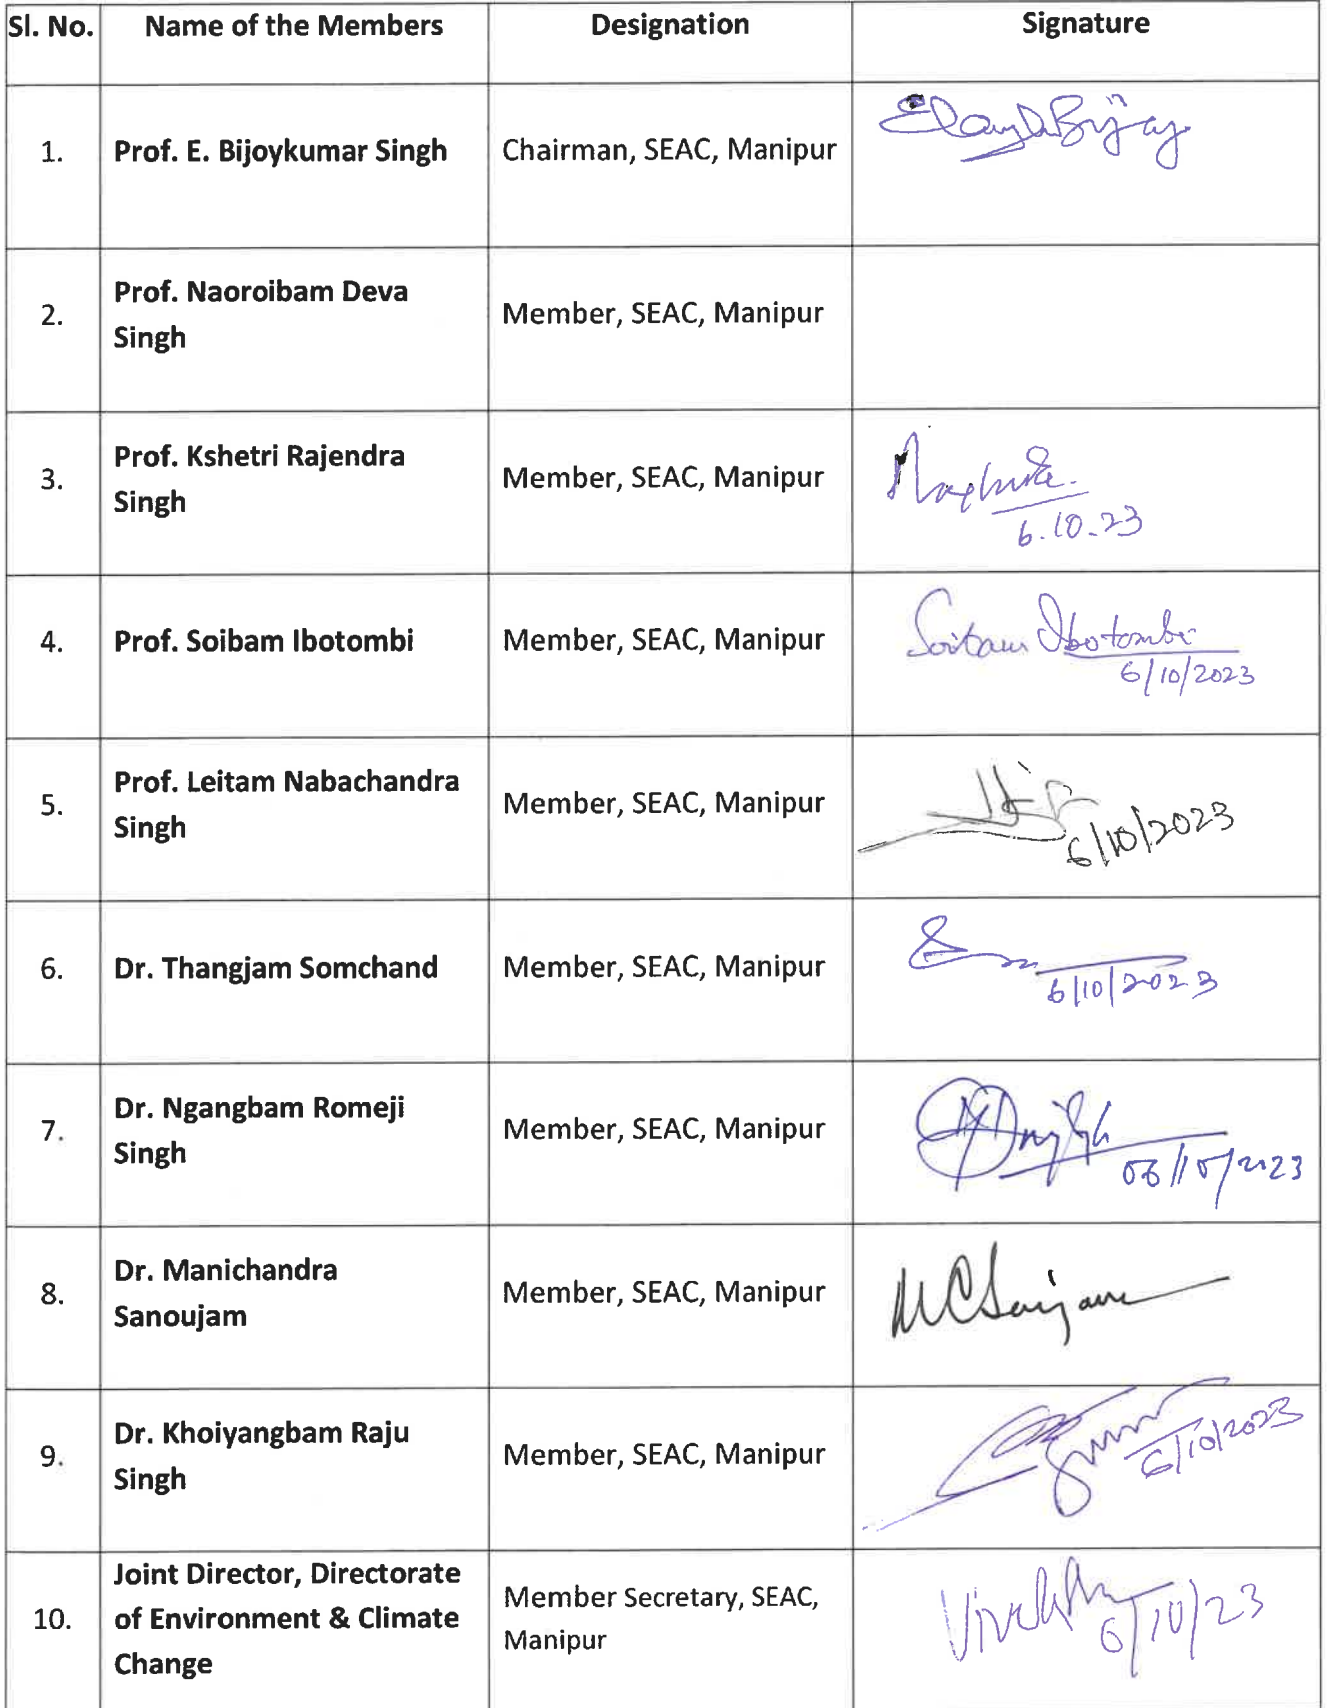 Sl. No. Name of the Members Designation Signature
1. Prof. E. Bijoykumar Singh Chairman, SEAC, Manipur
2. Prof. Naoroibam Deva Singh Member, SEAC, Manipur
3. Prof. Kshetri Rajendra Singh Member, SEAC, Manipur
6.10.23
4. Prof. Soibam Ibotombi Member, SEAC, Manipur Soibam Ibotombi
6/10/2023
5. Prof. Leitam Nabachandra Singh Member, SEAC, Manipur
6/10/2023
6. Dr. Thangjam Somchand Member, SEAC, Manipur
6/10/2023
7. Dr. Ngangbam Romeji Singh Member, SEAC, Manipur
06/10/2023
8. Dr. Manichandra Sanoujam Member, SEAC, Manipur
9. Dr. Khoiyangbam Raju Singh Member, SEAC, Manipur
6/10/2023
10. Joint Director, Directorate of Environment & Climate Change Member Secretary, SEAC, Manipur
6/10/23